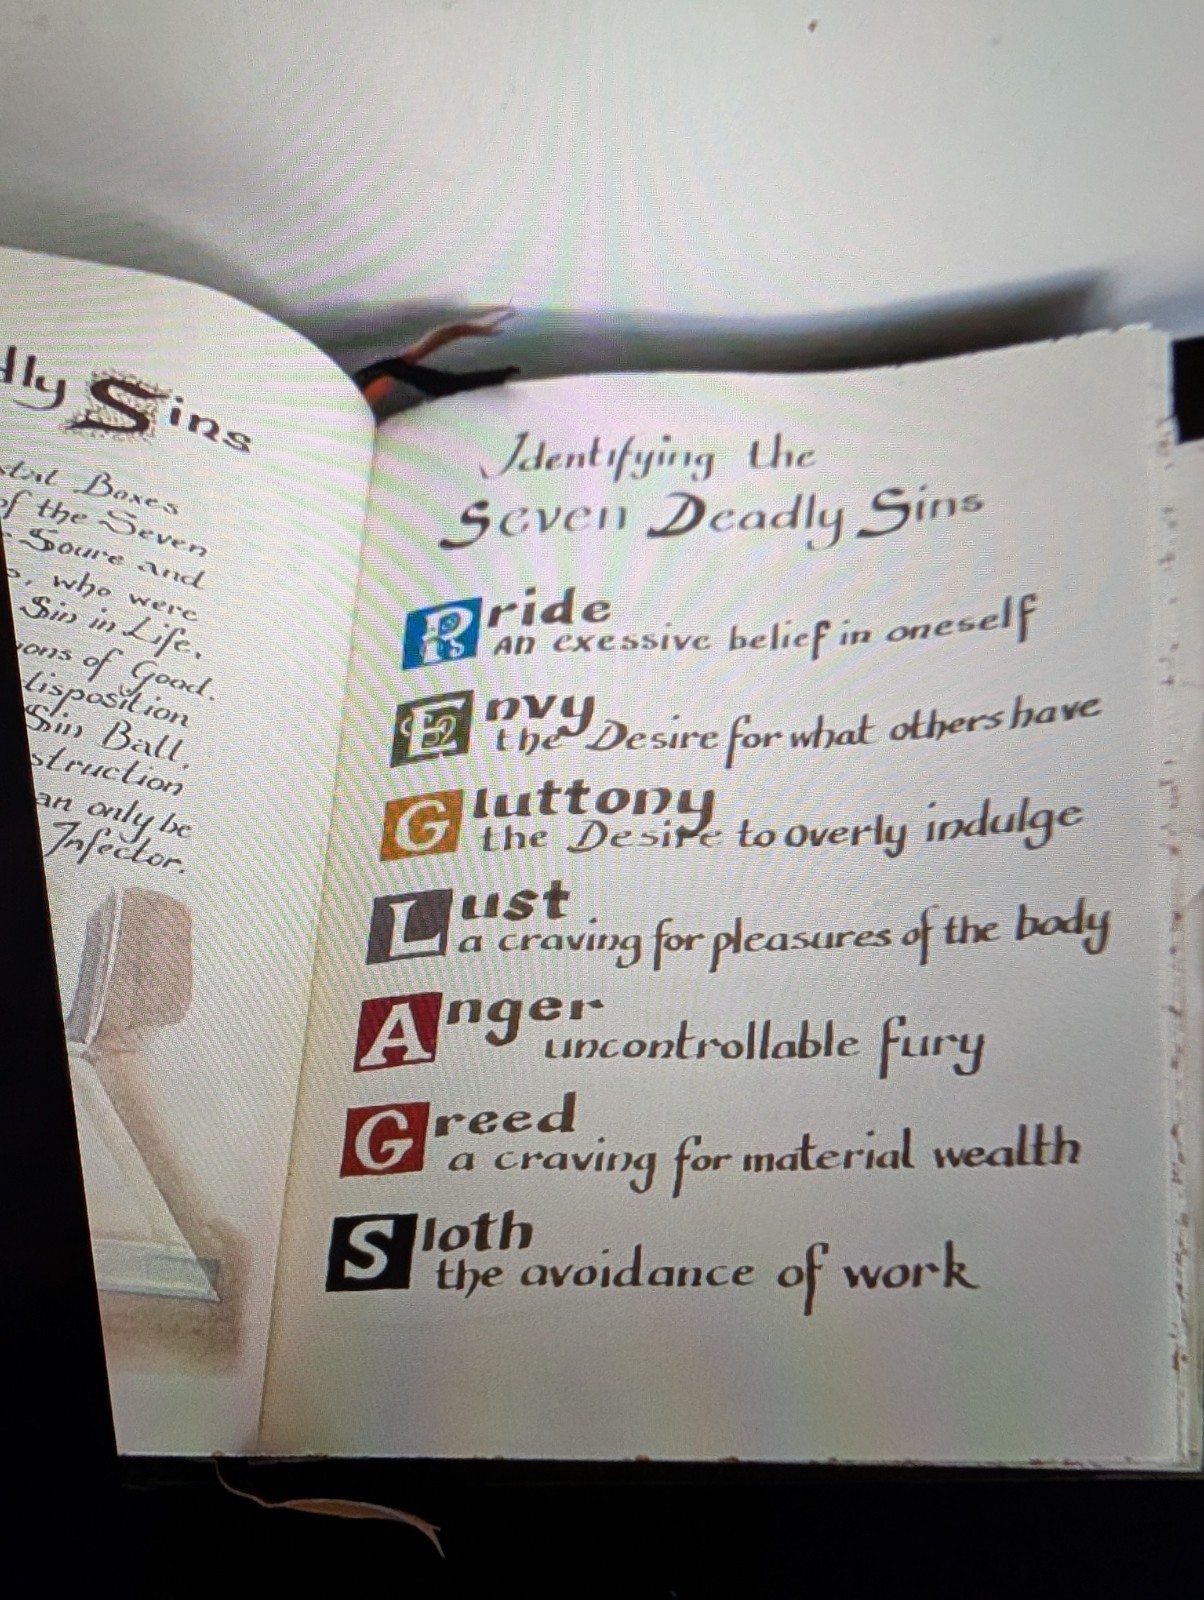 dly Sins
Boxes
of the Seven
Soure and
who were
Sin in Life,
ions of Good.
disposition
Sin Ball.
struction
an only be
Infector.
Identifying the
Seven Deadly Sins
Pride
An exessive belief in oneself
Envy
the Desire for what others have
Gluttony
the Desire to overly indulge
Lust
a craving for pleasures of the body
Anger
uncontrollable fury
Greed
a craving for material wealth
Sloth
the avoidance of work